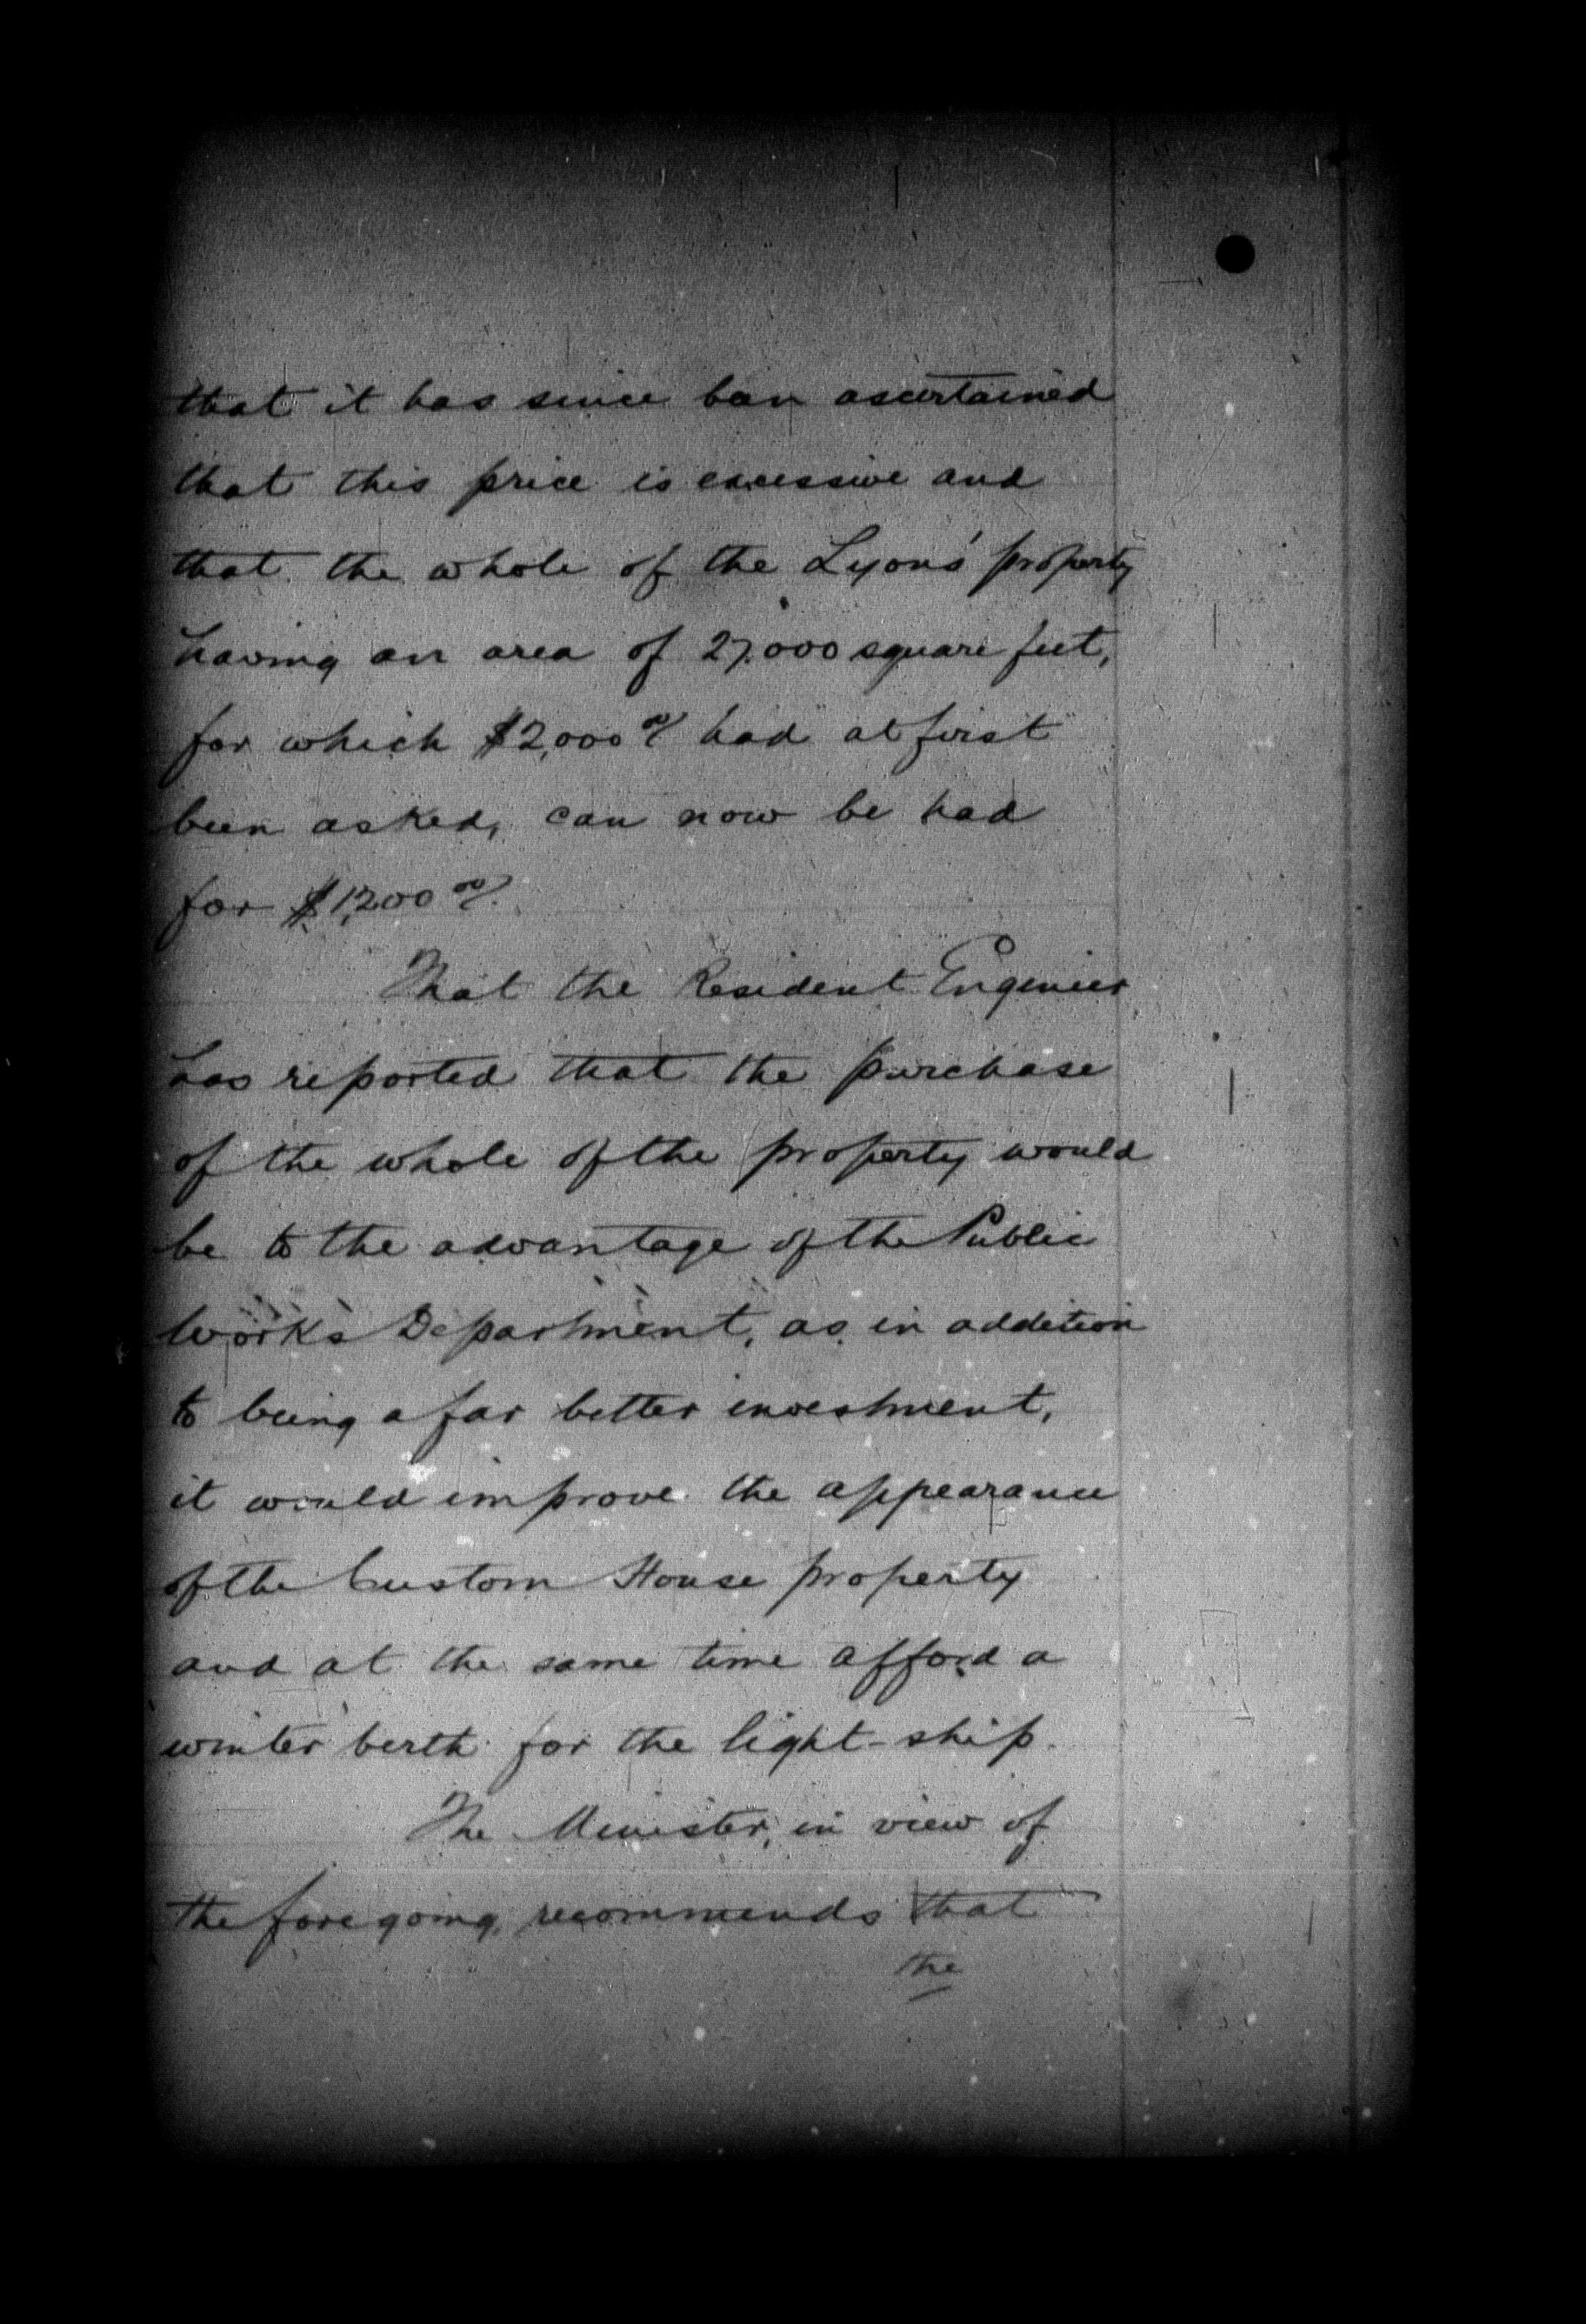 that it has since been ascertained
that this price is excessive and
that the whole of the Lyons' property
having an area of 27,000 square feet,
for which $2,000 00/ had at first
been asked, can now be had
for $1,200 00/.
That the Resident Engineer
has reported that the purchase
of the whole of the property would
be to the advantage of the Public
Works Department, as in addition
to being a far better investment,
it would improve the appearance
of the Custom House property
and at the same time afford a
winter berth for the light-ship.
The Minister, in view of
the foregoing, recommends that
the